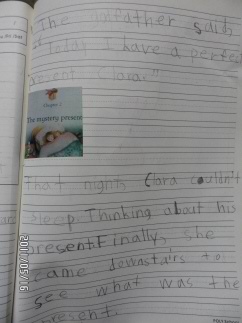 The godfather said
"Today I have a perfect
present Clara."
Chapter 2
The mystery present
That night, Clara couldn't
sleep. Thinking about his
present. Finally, she
came downstairs to
see what was the
present.
2011/05/16